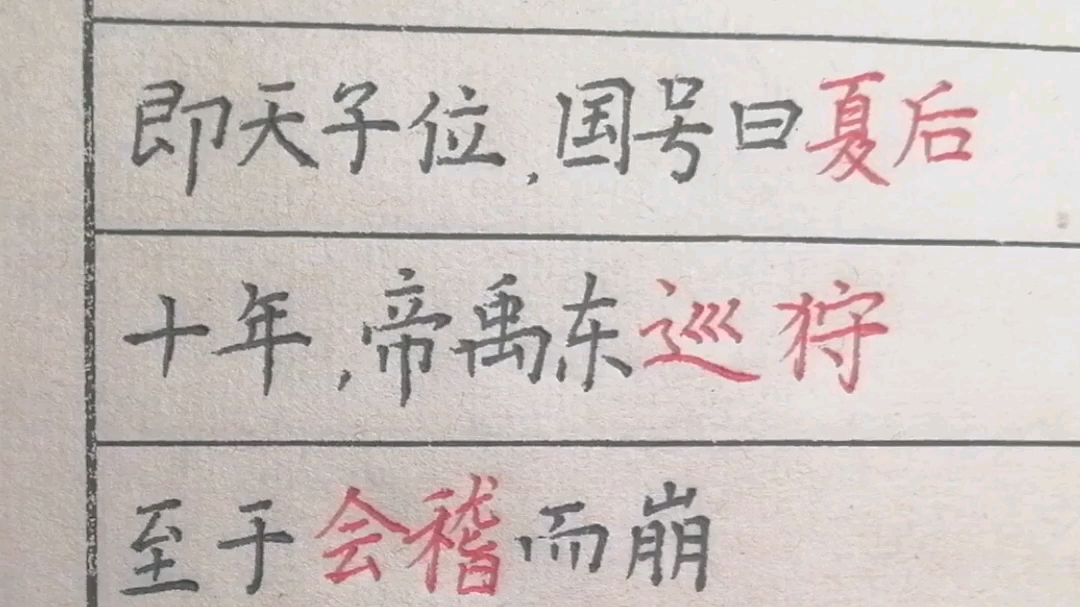 即天子位,国号曰夏后
十年,帝禹东巡狩
至于会稽而崩